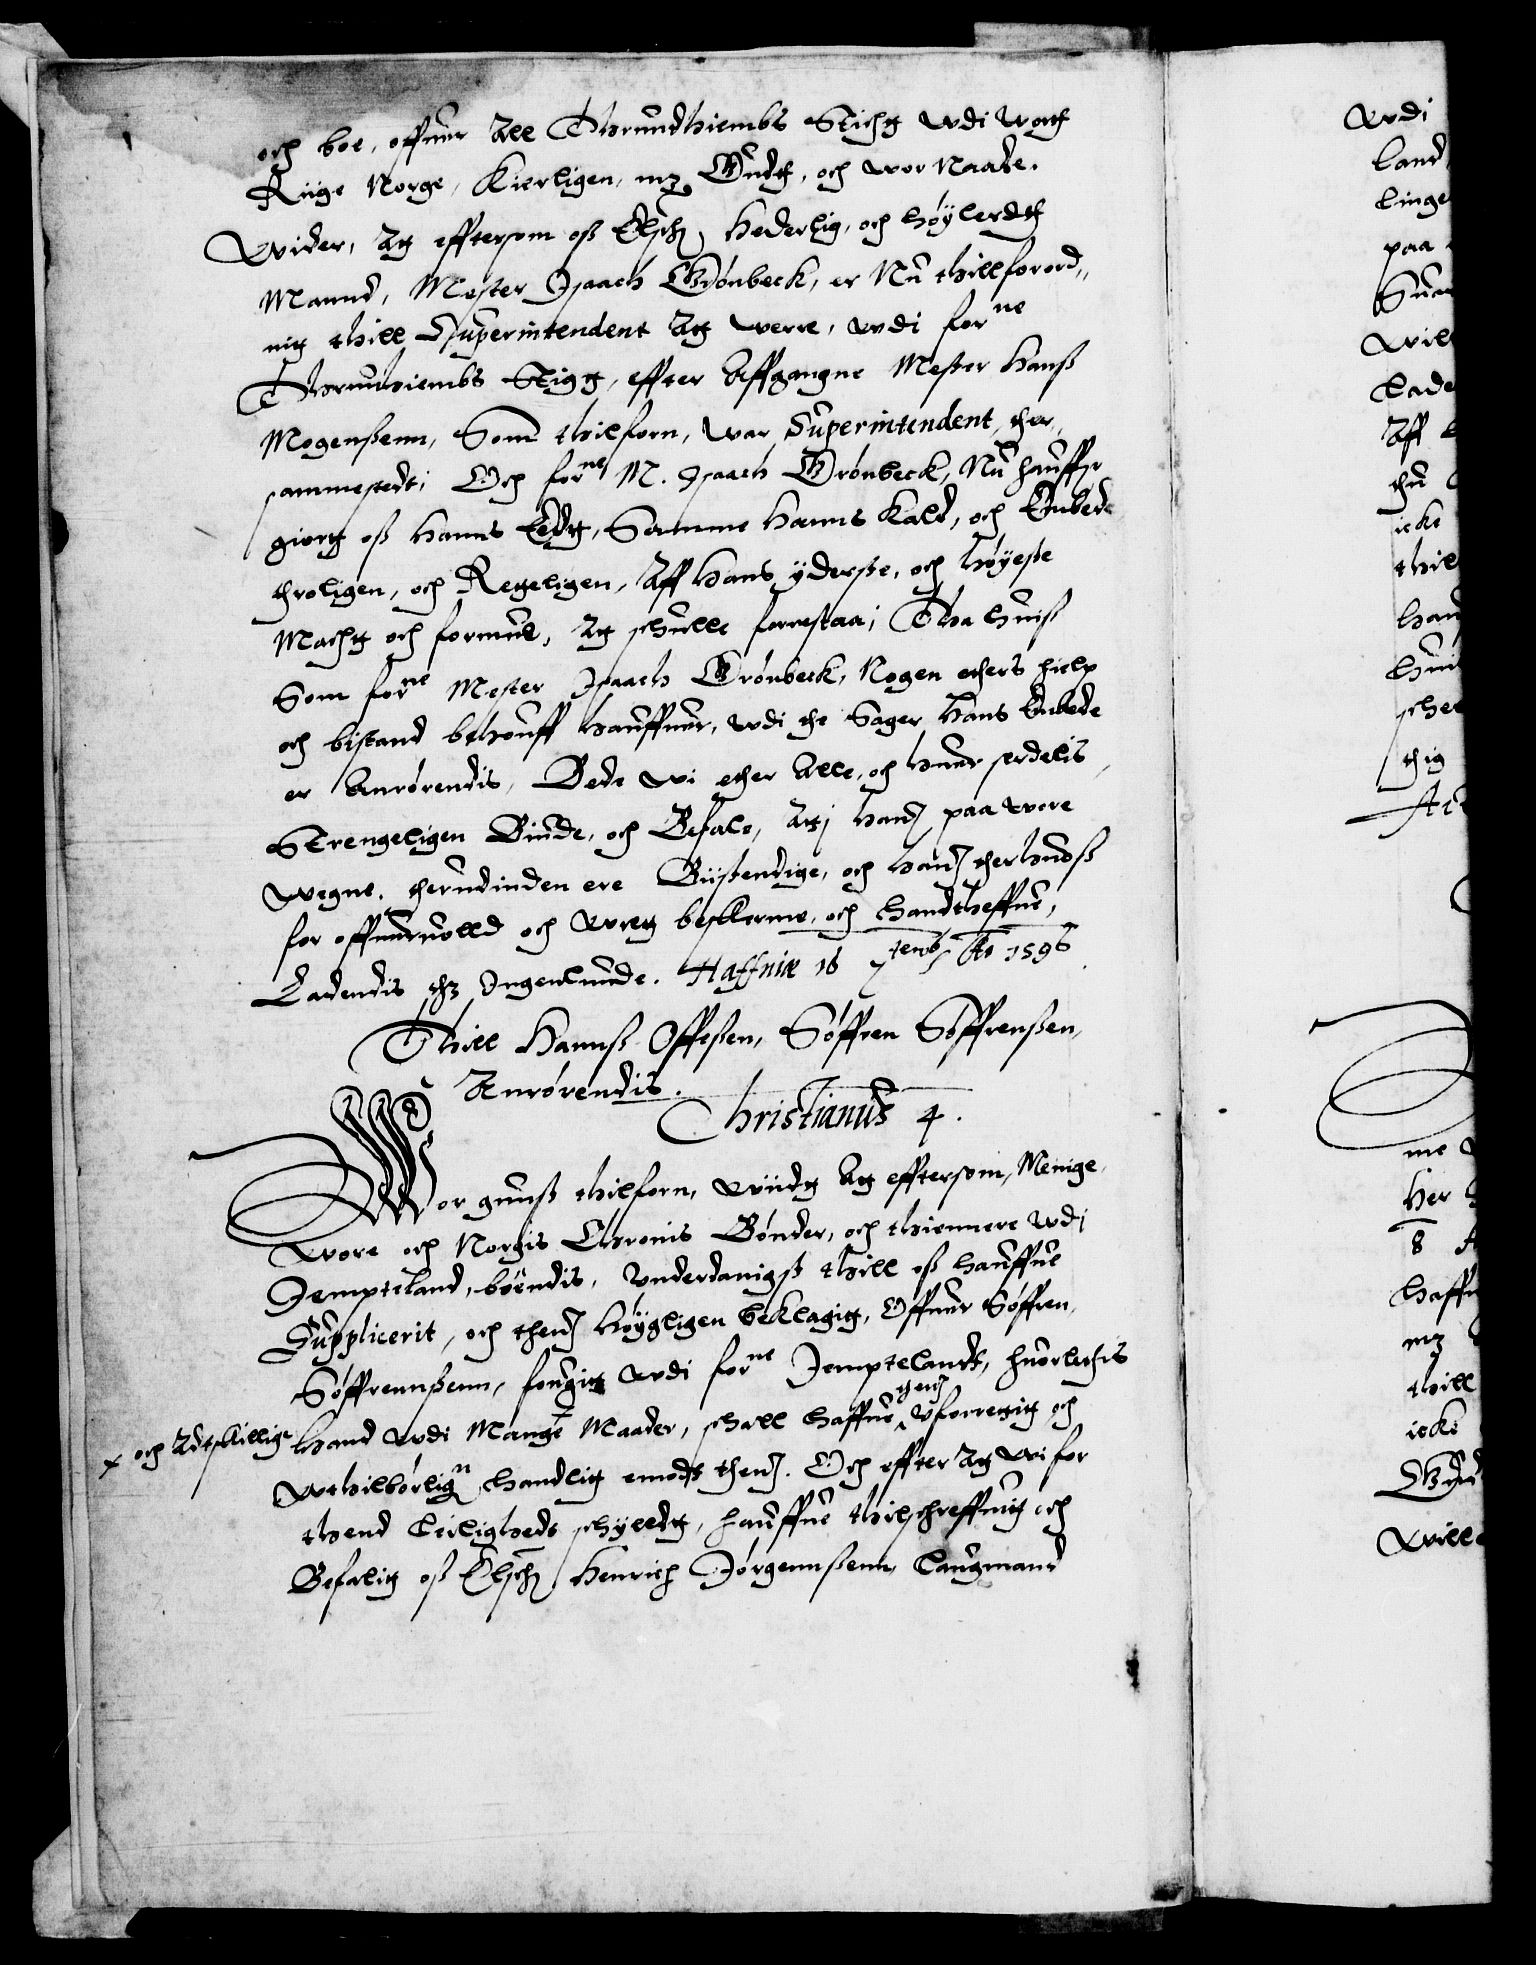 och boe, offuer All Thrundhiembs Sticht vdi wort
Riige Norge, Kierligen, mz Gudt, och wor Naade.
Wider, At effterson oß Elsch: Hederlig, och høylerdt
Mannd, Mester Isaach Grönbeck, er Nu thillforord,,
nit thill Superintendent At werre, vdi forne
Thrundhiembs Stigt, effter Affgangne Mester Hanß
Mogenßenn, Som thilforn, war Superintendent, ther,,
sammestedt; Och forne M. Isaach Grönbeck, Nu hauffr
giort oß Hanns Eedt, Samme Hanns Kald, och Embede
throligen, och Retteligen, Aff Hans yderste, och høyeste
Macht och formue, At schulle forrestaa; Tha huiß
Som forne Mester Isaach Grönbeck, Nogen ethers hielp
och bistand behouff hauffuer, vdi the Sager Hans Embede
er Anrörendis, Bede wi ether Alle, och huuer serdelis,
Strengeligen Biude, och Befale, Atj hanj paa wore
wegne, therudinden ere Biistendige, och hanj therhuoß
for offueruolld och wret beskerme, och handtheffue,
Ladendis thz Ingenlunde. Haffniæ 16 7temb: Ao 1596
Thill Hannß Offeßen, Söffren Söffrenßen,
Anrörendis.
Christianus 4.
Wor gunst thilforn, wiidt At efftersom, Menige
wore och Norgis Chronis Bönder, och thiennere vdj
Jempteland, böendis, Vnderdanigst thill oß hauffue
Supplicerit, och thenj Høygligen beklagit, Offuer Söffren
Söffrennßenn, fougit vdi forne Jempteland, huorledis
Hand vdi Mange Maader, schall haffue thenj Vforrettit och
x och Adtskillige
wthilbörlign handlit emodt thenj. Och effter At wi for
thend Leiligheds schylldt, hauffue thilschreffuit och
Befalit oß Elsch: Henrich Jörgennßenn, Laugmand
wdi
land
linge
paa
Suar
will
Lade
Aff
thu
icke
thil
han
huu
sche
thig
me
Her
8
haffu
mz
thill
icke
Gud
Wille